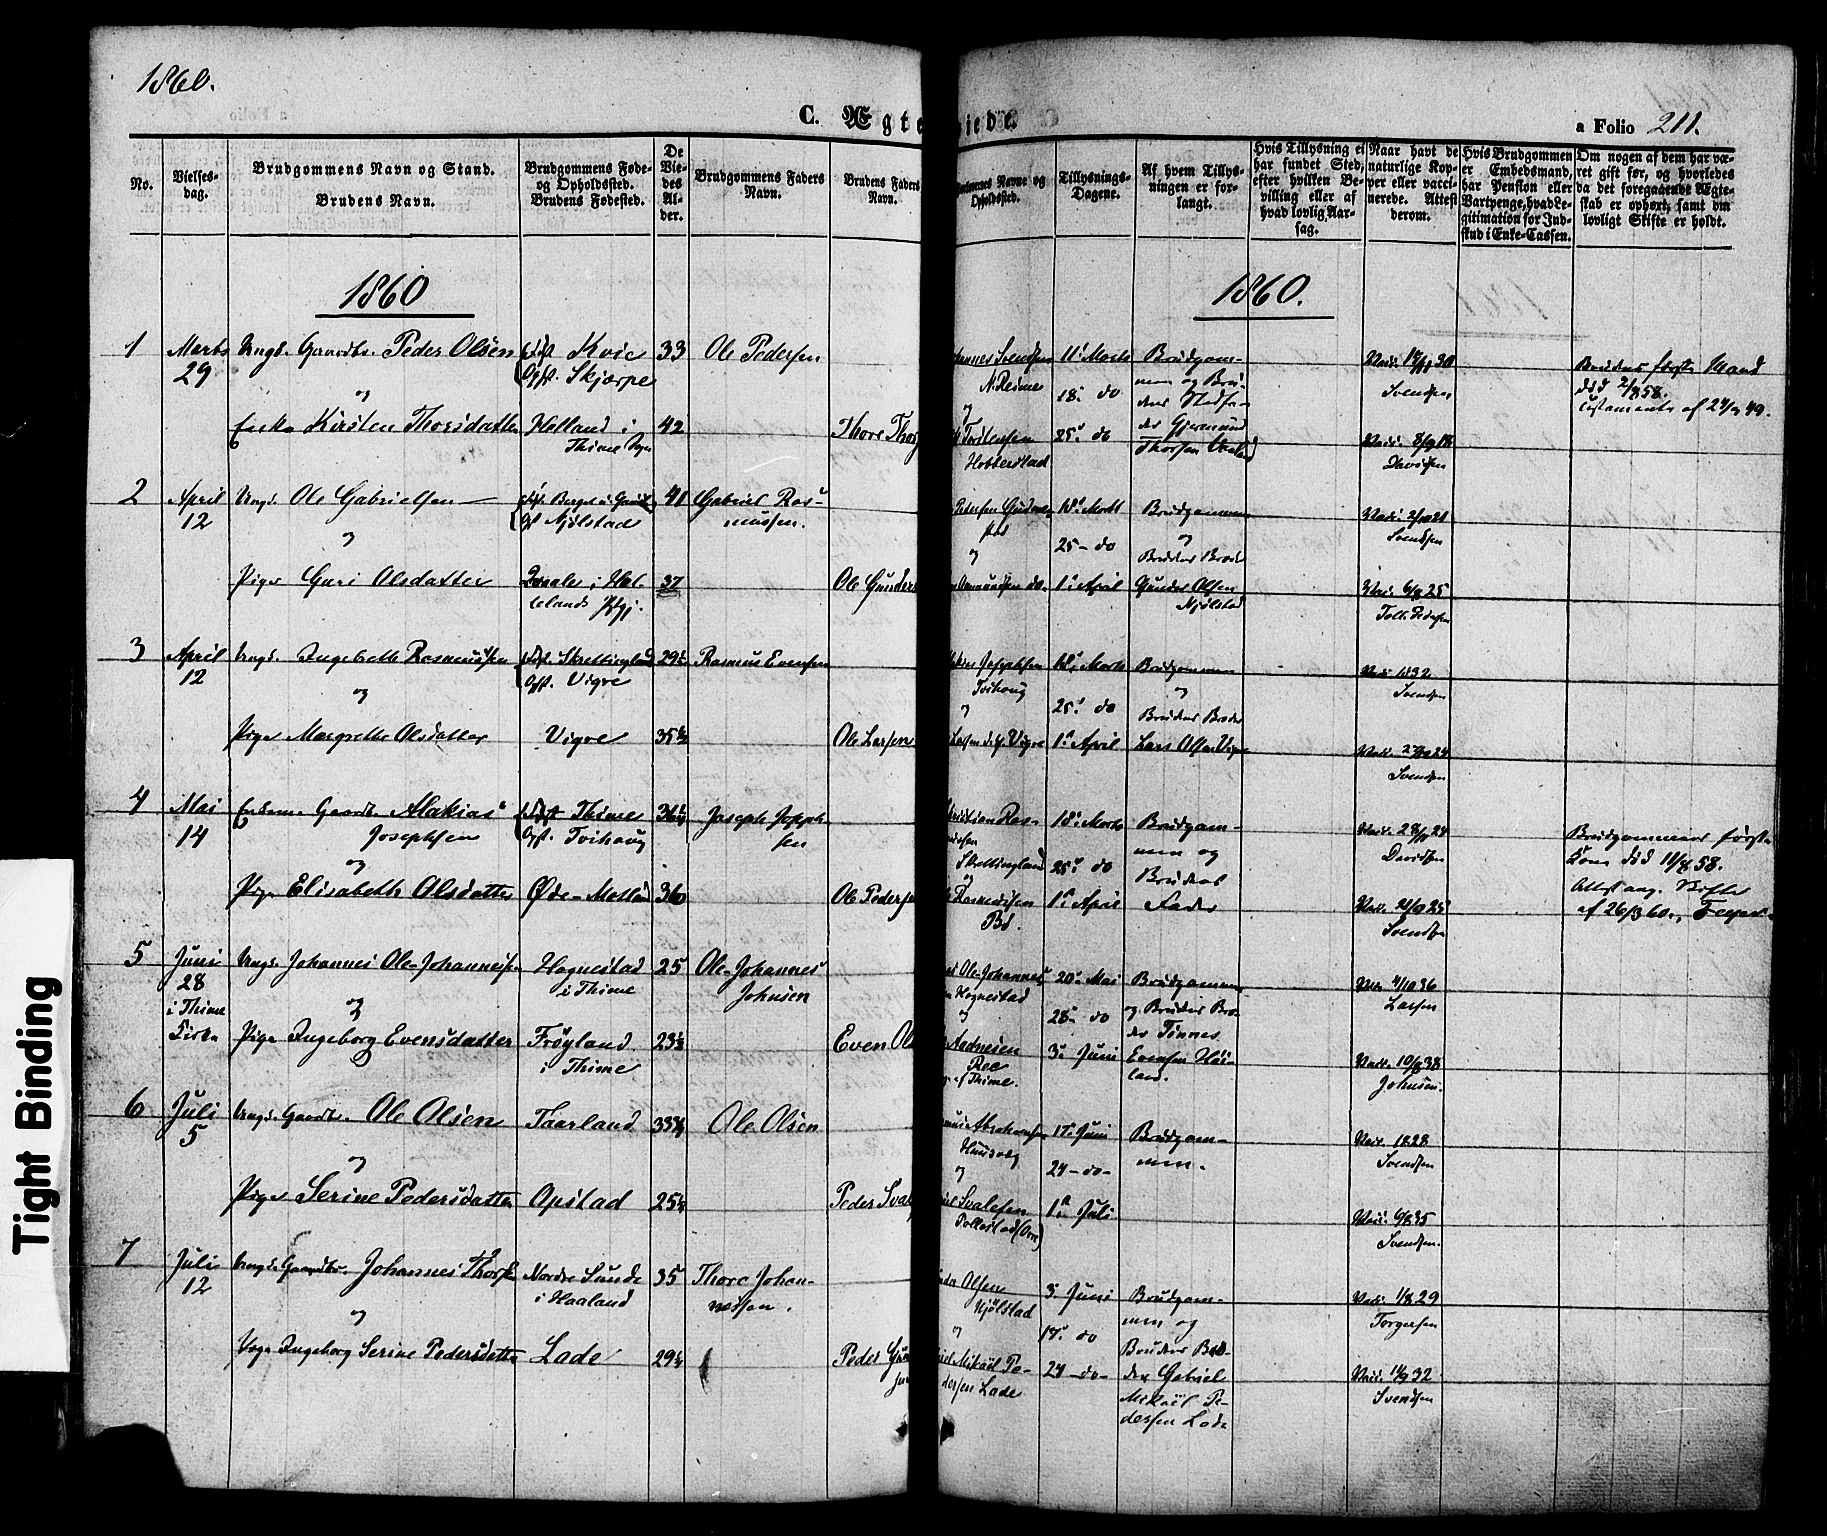 1860.
C. Ægte
iede.
a Folio 211.
No.
Vielses-
dag.
Brudgommens Navn og Stand.
Brudens Navn.
Brudgommens Føde-
og Opholdssted.
Brudens Fødested.
De
Vie-
des
Al-
der.
Brudgommens Faders
Navn.
Brudens Faders
Navn.
Navne og
Opholdssted.
Tillysnings-
Dagene.
Af hvem Tillys-
ningen er for-
langt.
Hvis Tillysning ei
har fundet Sted,
efter hvilken Be-
villing eller af
hvad lovlig Aar-
sag.
Naar havt de
naturlige Kop-
per eller vacci-
nerede. Attest
derom.
Hvis Brudgommen
er Embedsmand,
har Pension eller
Vartpenge, hvad Le-
gitimation for Ind-
skud i Enke-Cassen.
Om nogen af dem har væ-
ret gift før, og hvorledes
da det foregaaende Ægte-
skab er ophørt, samt om
lovligt Skifte er holdt.
1860
1860.
1
Marts
29
Ungk. Gaardbr. Peder Olsen
og
Enke Kirsten Thorsdatter
Kvie
Opst. Skjærpe
Helland i
Thime Sogn
33
42
Ole Pedersen
Thore Thors
Svendsen
N. Reime
og
Torstensen
Hobberstad
11. Marts
18. do
25. do
Brudgom-
men og Bru-
dens
Thorsen
Vacc. 30
Svendsen
Vacc. 18
Davidsen
Brudens første Mand
død 2/8 58.
Testamente af 24/9 49.
2
April
12
Ungk. Ole Gabrielsen
og
Pige Guri Olsdatter
Njølstad
i Hel-
lelands Pgj.
41
37
Gabriel Ras-
mussen.
Ole Gunders
Pedersen
og
Aamundsen do.
18. Marts
25 - do
1. April
Brudgommen
og
Brudens Broder
Gunder Olsen
Njølstad
Vacc. 21
Svendsen
Vacc. 6/8 25
Pedersen
3
April
12
Ungk. Ingebreth Rasmussen
og
Pige Margrethe Olsdatter
Skrettingland
Opst. Vigre
Vigre
29½
35½
Rasmus Evensen
Ole Larsen
Josephsen
Tvihaug
og
Larsen Vigre
18. Marts
25. do
1. April
Brudgommen
og
Brudens Broder
Lars Olsen Vigre
Vacc. 1832
Svendsen
Vacc. 24
Svendsen
4
Mai
14
Enkem. Gaardbr. Malakias
Josephsen
og
Pige Elisabeth Olsdatter
Thime
Opst. Tvihaug
Øde-Motland
36½
36
Joseph Joseph-
sen
Ole Pedersen
Christian Ras-
mussen
Skrettingland
og
Rasmussen
Bø.
18. Marts
25. do
1. April
Brudgom-
men og
Brudens
Fader
Vacc. 24
Davidsen
Vacc. 25
Svendsen
Brudgommens første
Kone død 11/8 58.
Attest ang. Skifte
af 26/3 60.
5
Juni
28
i Thime
Kirke
Ungk. Johannes Ole-Johannessen
og
Pige Ingeborg Evensdatter
Hognestad
i Thime
Frøyland
i Thime
25
23½
Ole-Johannes
Johnsen
Even Ol
Ole-Johannes
Hognestad
og
Aadnesen
Ree
Thime.
20. Mai
28. do
3. Juni
Brudgommen
og Brudens Bro-
der Tønnes
Evensen Høi-
land.
Vacc. 4/10 36
Larsen
Vacc. 10/8 38
Johnsen.
6
Juli
5
Ungk. Gaardbr. Ole Olsen
og
Pige Serine Pedersdatter
Taarland
Opstad
33¾
25½
Ole Olsen
Peder Sval
Abrahamsen
Huusvæg
og
Svalesen
Pollestad (Orre)
17. Juni
24 - do -
1. Juli
Brudgom-
men.
Vacc. 1828
Svendsen
Vacc. 6/8 35
Svendsen.
7
Juli
12
Ungk. Gaardbr. Johannes Thorsen
og
Pige Ingeborg Serine Pedersdatter
Nordre Sunde
i Haaland
Lade
35
29½
Thore Johan-
nessen.
Peder Gun
sen
Olsen
Njølstad
og
Mikael Pe-
dersen Lade
3. Juni
17. do
24 - do -
Brudgom-
men og
Brudens Bro-
der Gabriel
Mikael Pe-
dersen Lade
Vacc. 1/8 29
Torgersen
Vacc. 1/9 32
Svendsen
Tight Binding